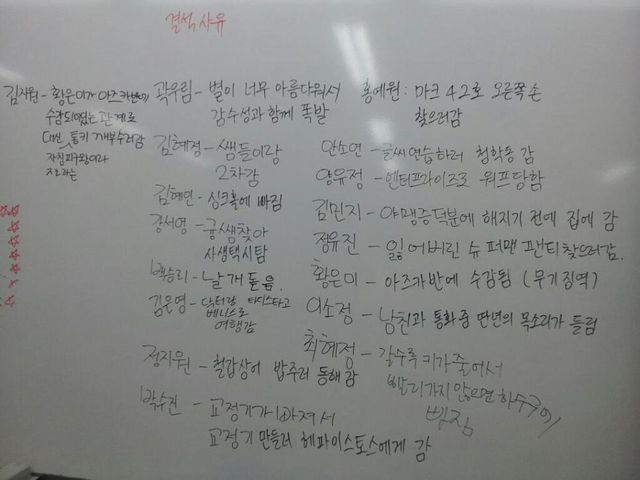 결석사유
김지원 - 황은미가 아즈카반에
수감되어있는 관계로
대신 통키 깨부수러감
자칭피구왕이라
곽우림 - 별이 너무 아름다워서
감수성과 함께 폭발
김혜정 - 쌤들이랑
2차감
김혜연 - 싱크홀에 빠짐
강서영 - 궁쌤찾아
사생택시탐
백승리 - 날개돋음.
김은영 - 닥터랑 타디스타고
베니스로
여행감
정지원 - 철갑상어 밥주러 동해감
박수진 - 교정기가 빠져서
교정기 만들러 헤파이스토스에게 감
홍예원 : 마크 42호 오른쪽손
찾으러감
안소연 - 글씨연습하러 청학동 감
양유정 - 엔터프라이즈로 워프당함
김민지 - 야맹증덕분에 해지기 전에 집에 감
정유진 - 잃어버린 슈퍼맨 팬티찾으러감.
황은미 - 아즈카반에 수감됨 (무기징역)
이소정 - 남친과 통화중 딴년의 목소리가 들림
최혜정 - 갈수록 키가줄어서
빨리가지않으면 하수구에
빠짐